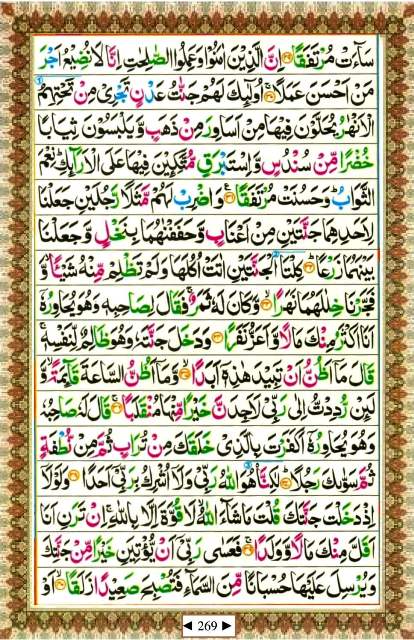 سَآءَتۡ مُرۡتَفَقًا ۞ اِنَّ الَّذِيۡنَ اٰمَنُوۡا وَعَمِلُوا الصّٰلِحٰتِ اِنَّا لَا نُضِيۡعُ اَجۡرَ
مَنۡ اَحۡسَنَ عَمَلًا ۞ اُولٰٓئِكَ لَهُمۡ جَنّٰتُ عَدۡنٍ تَجۡرِىۡ مِنۡ تَحۡتِهِمُ
الۡاَنۡهٰرُ يُحَلَّوۡنَ فِيۡهَا مِنۡ اَسَاوِرَ مِنۡ ذَهَبٍ وَّيَلۡبَسُوۡنَ ثِيَابًا
خُضۡرًا مِّنۡ سُنۡدُسٍ وَّاِسۡتَبۡرَقٍ مُّتَّكِـِٕيۡنَ فِيۡهَا عَلَى الۡاَرَآٮِٕكِ‌ؕ نِعۡمَ
الثَّوَابُ ؕ وَحَسُنَتۡ مُرۡتَفَقًا ۞ وَاضۡرِبۡ لَهُمۡ مَّثَلًا رَّجُلَيۡنِ جَعَلۡنَا
لِاَحَدِهِمَا جَنَّتَيۡنِ مِنۡ اَعۡنَابٍ وَّحَفَفۡنٰهُمَا بِنَخۡلٍ وَّجَعَلۡنَا
بَيۡنَهُمَا زَرۡعًا ۞ كِلۡتَا الۡجَنَّتَيۡنِ اٰتَتۡ اُكُلَهَا وَلَمۡ تَظۡلِمۡ مِّنۡهُ شَيۡـًٔـا ۙ وَّ
فَجَّرۡنَا خِلٰلَهُمَا نَهَرًا ۞ وَّكَانَ لَهٗ ثَمَرٌ‌ ۚ فَقَالَ لِصَاحِبِهٖ وَهُوَ يُحَاوِرُهٗۤ
اَنَا اَكۡثَرُ مِنۡكَ مَالًا وَّاَعَزُّ نَفَرًا ۞ وَدَخَلَ جَنَّتَهٗ وَهُوَ ظَالِمٌ لِّنَفۡسِهٖ‌ ۚ
قَالَ مَاۤ اَظُنُّ اَنۡ تَبِيۡدَ هٰذِهٖۤ اَبَدًا ۞ وَّمَاۤ اَظُنُّ السَّاعَةَ قَآٮِٕمَةً ۙ وَّ
لَٮِٕنۡ رُّدِدْتُّ اِلٰى رَبِّىۡ لَاَجِدَنَّ خَيۡرًا مِّنۡهَا مُنۡقَلَبًا ۞ قَالَ لَهٗ صَاحِبُهٗ
وَهُوَ يُحَاوِرُهٗۤ اَكَفَرۡتَ بِالَّذِىۡ خَلَقَكَ مِنۡ تُرَابٍ ثُمَّ مِنۡ نُّطۡفَةٍ
ثُمَّ سَوّٰٮكَ رَجُلًا ۞ لٰـكِنَّا۟ هُوَ اللّٰهُ رَبِّىۡ وَلَاۤ اُشۡرِكُ بِرَبِّىۡۤ اَحَدًا ۞ وَلَوۡلَاۤ
اِذۡ دَخَلۡتَ جَنَّتَكَ قُلۡتَ مَا شَآءَ اللّٰهُ ۙ لَا قُوَّةَ اِلَّا بِاللّٰهِ‌ ۚ اِنۡ تَرَنِ اَنَا
اَقَلَّ مِنۡكَ مَالًا وَّوَلَدًا‌ ۞ فَعَسٰى رَبِّىۡۤ اَنۡ يُّؤۡتِيَنِ خَيۡرًا مِّنۡ جَنَّتِكَ
وَيُرۡسِلَ عَلَيۡهَا حُسۡبَانًا مِّنَ السَّمَآءِ فَتُصۡبِحَ صَعِيۡدًا زَلَـقًا ۞ اَوۡ
269